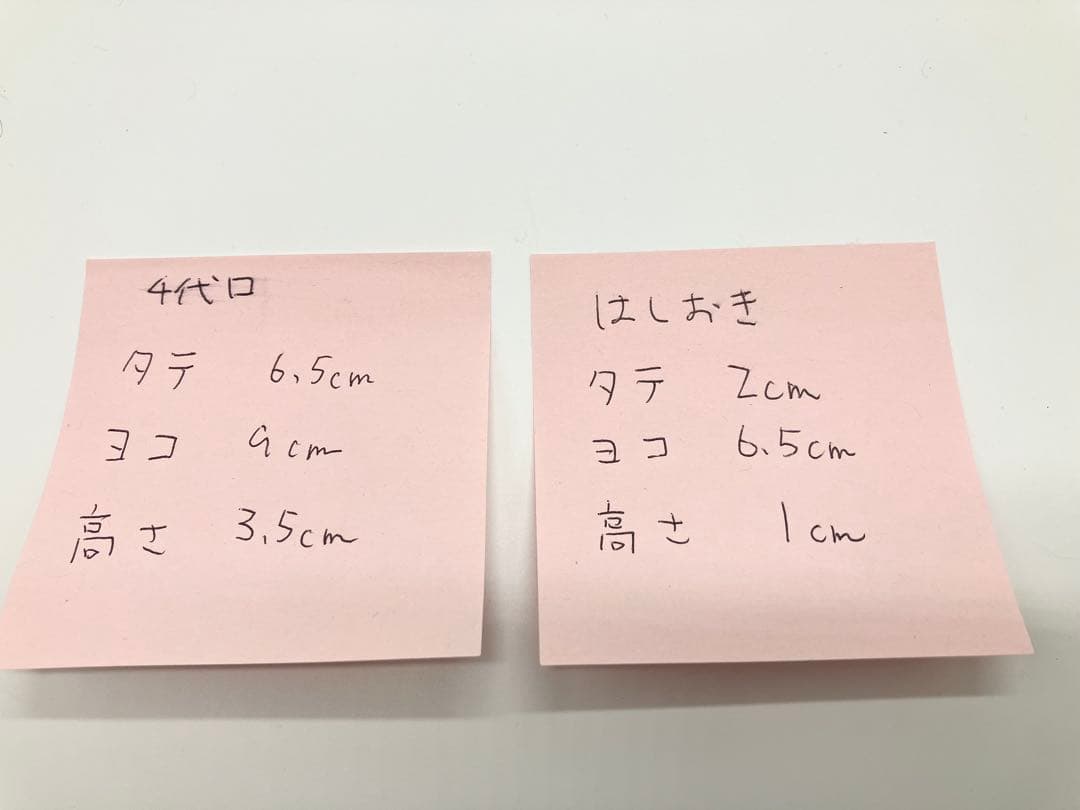 4代口
タテ 6.5cm
ヨコ 9cm
高さ 3.5cm
はしおき
タテ 2cm
ヨコ 6.5cm
高さ 1cm